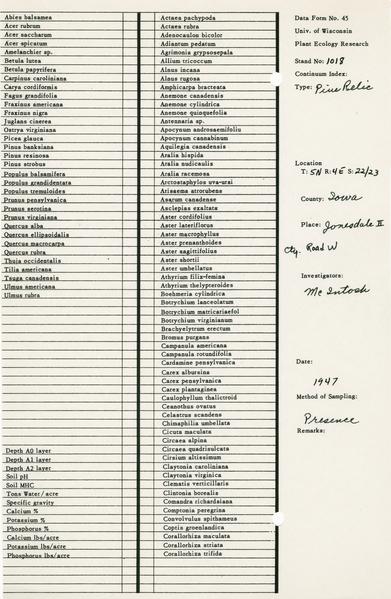 Abies balsamea
Acer rubrum
Acer saccharum
Acer spicatum
Amelanchier sp.
Betula lutea
Betula papyrifera
Carpinus caroliniana
Carya cordiformis
Fagus grandifolia
Fraxinus americana
Fraxinus nigra
Juglans cinerea
Ostrya virginiana
Picea glauca
Pinus banksiana
Pinus resinosa
Pinus strobus
Populus balsamifera
Populus grandidentata
Populus tremuloides
Prunus pensylvanica
Prunus serotina
Prunus virginiana
Quercus alba
Quercus ellipsoidalis
Quercus macrocarpa
Quercus rubra
Thuja occidentalis
Tilia americana
Tsuga canadensis
Ulmus americana
Ulmus rubra
Depth A0 layer
Depth A1 layer
Depth A2 layer
Soil pH
Soil MHC
Tons Water/acre
Specific gravity
Calcium %
Potassium %
Phosphorus %
Calcium lbs/acre
Potassium lbs/acre
Phosphorus lbs/acre
Actaea pachypoda
Actaea rubra
Adenocaulon bicolor
Adiantum pedatum
Agrimonia gryposepala
Allium tricoccum
Alnus incana
Alnus rugosa
Amphicarpa bracteata
Anemone canadensis
Anemone cylindrica
Anemone quinquefolia
Antennaria sp.
Apocynum androsaemifolium
Apocynum cannabinum
Aquilegia canadensis
Aralia hispida
Aralia nudicaulis
Aralia racemosa
Arctostaphylos uva-ursi
Arisaema atrorubens
Asarum canadense
Asclepias exaltata
Aster cordifolius
Aster lateriflorus
Aster macrophyllus
Aster prenanthoides
Aster sagittifolius
Aster shortii
Aster umbellatus
Athyrium filix-femina
Athyrium thelypteroides
Boehmeria cylindrica
Botrychium lanceolatum
Botrychium matricariaefol
Botrychium virginianum
Brachyelytrum erectum
Bromus purgans
Campanula americana
Campanula rotundifolia
Cardamine pensylvanica
Carex albursina
Carex pensylvanica
Carex plantaginea
Caulophyllum thalictroid
Ceanothus ovatus
Celastrus scandens
Chimaphila umbellata
Cicuta maculata
Circaea alpina
Circaea quadrisulcata
Cirsium altissimum
Claytonia caroliniana
Claytonia virginica
Clematis verticillaris
Clintonia borealis
Comandra richardsiana
Comptonia peregrina
Convolvulus spithameus
Coptis groenlandica
Corallorhiza maculata
Corallorhiza striata
Corallorhiza trifida
Data Form No. 45
Univ. of Wisconsin
Plant Ecology Research
Stand No: 1018
Continuum Index:
Type: Pine Relic
Location
T: 5N R: 4E S: 22/23
County: Iowa
Place: Jonesdale II
Cty. Road W
Investigators:
McIntosh
Date:
1947
Method of Sampling:
Presence
Remarks: